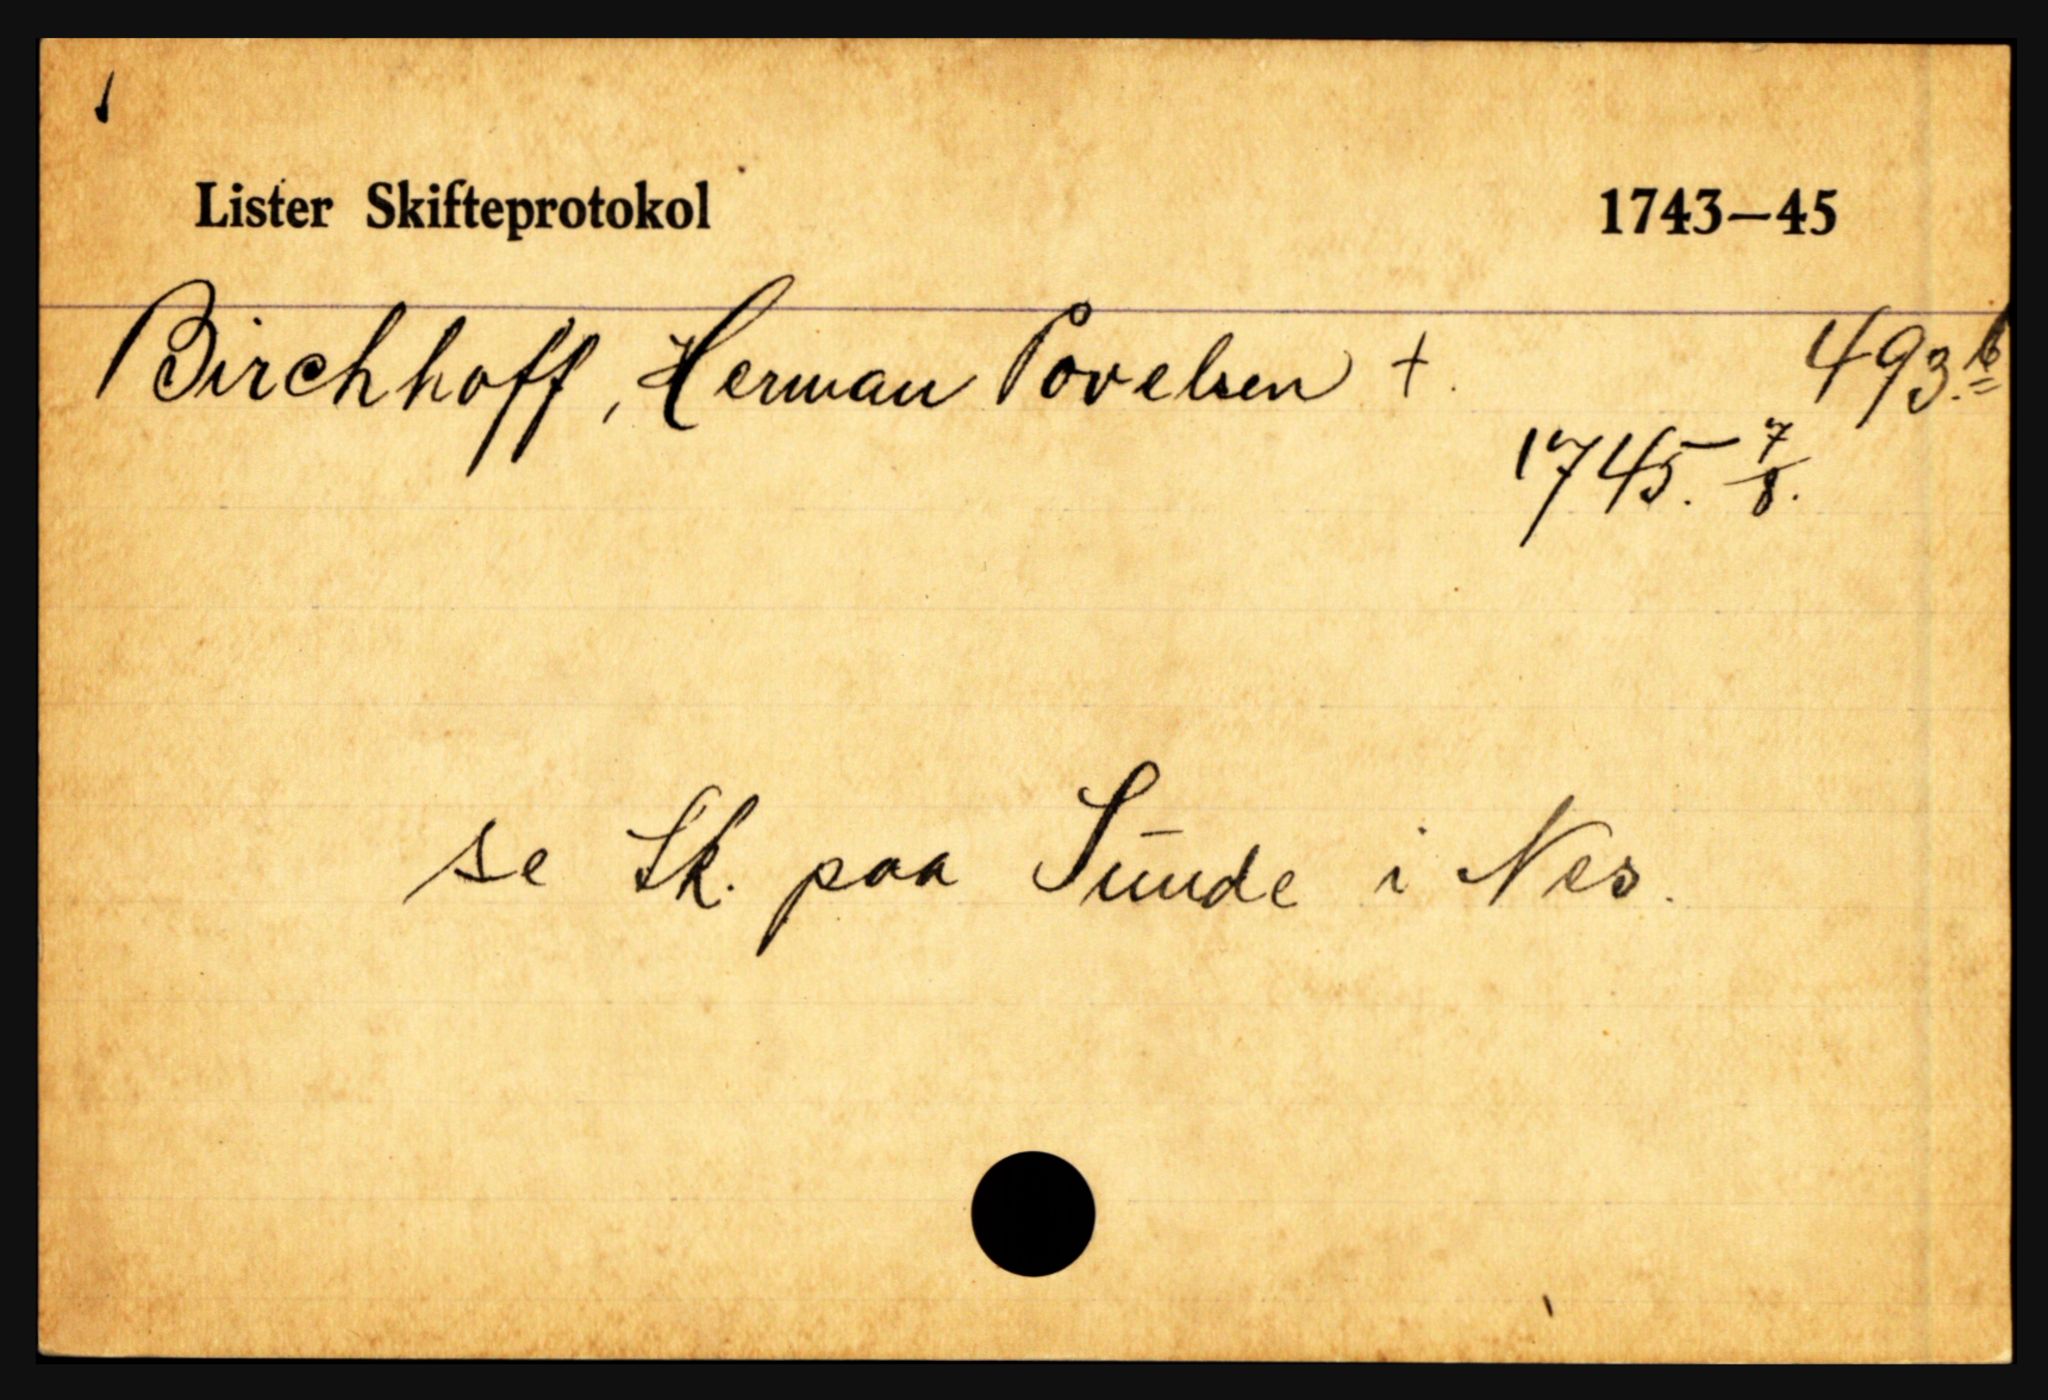 Lister Skifteprotokol 1743–45
Birchhoff, Herman Povelsen +. 493.b
1745. 7/8.
se Sk. paa Sunde i Nes.